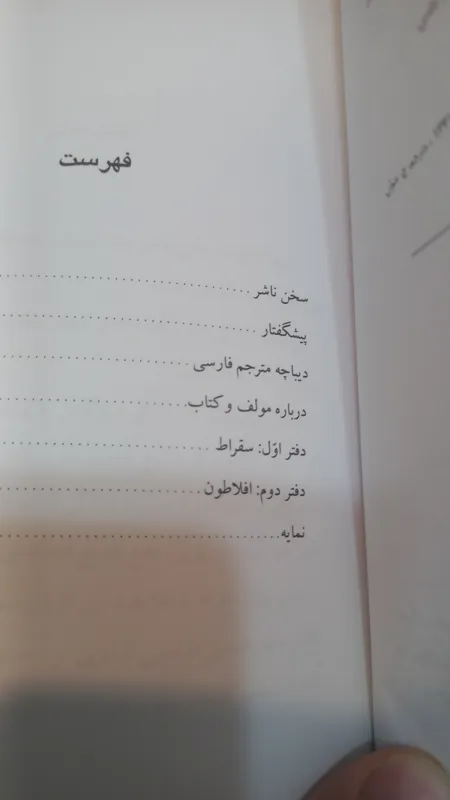 فهرست
سخن ناشر
پیشگفتار
دیباچه مترجم فارسی
درباره مولف و کتاب
دفتر اوّل: سقراط
دفتر دوم: افلاطون
نمایه